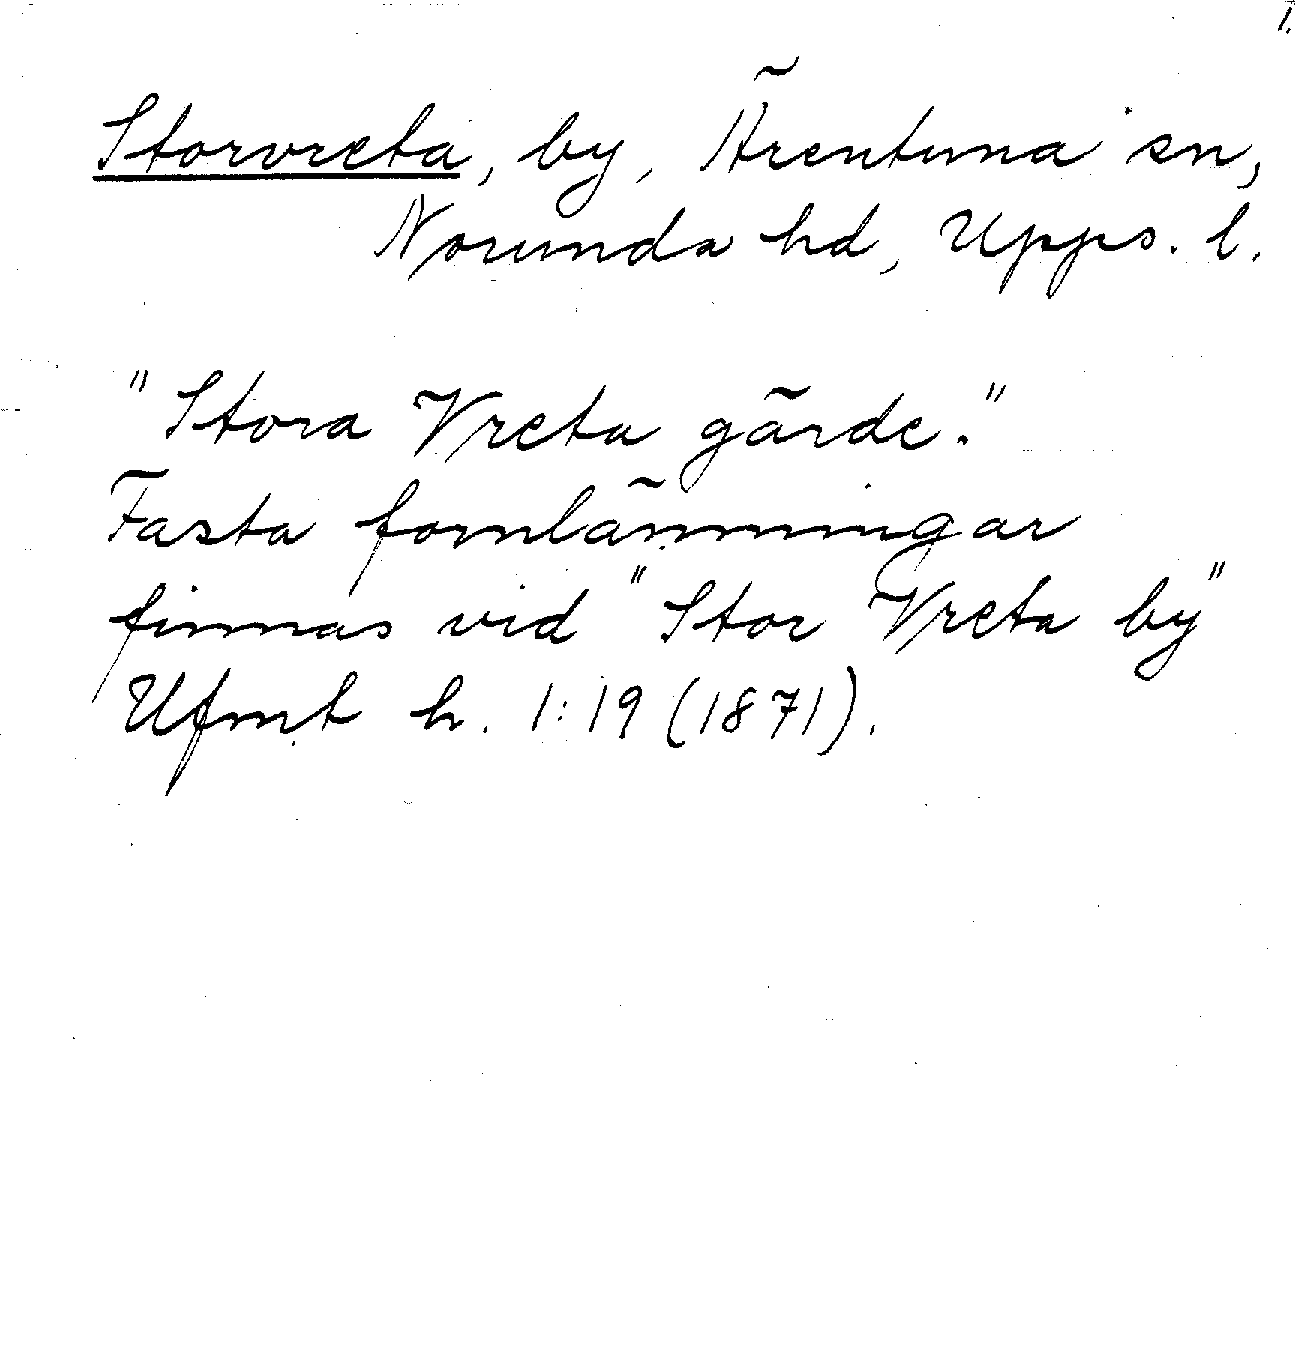 1.
Storvreta, by, Ärentuna sn,
Norunda hd, Upps. l.
"Stora Vreta gärde."
Fasta fornlämningar
finnas vid "Stor Vreta by"
Ufmt h. 1:19 (1871).